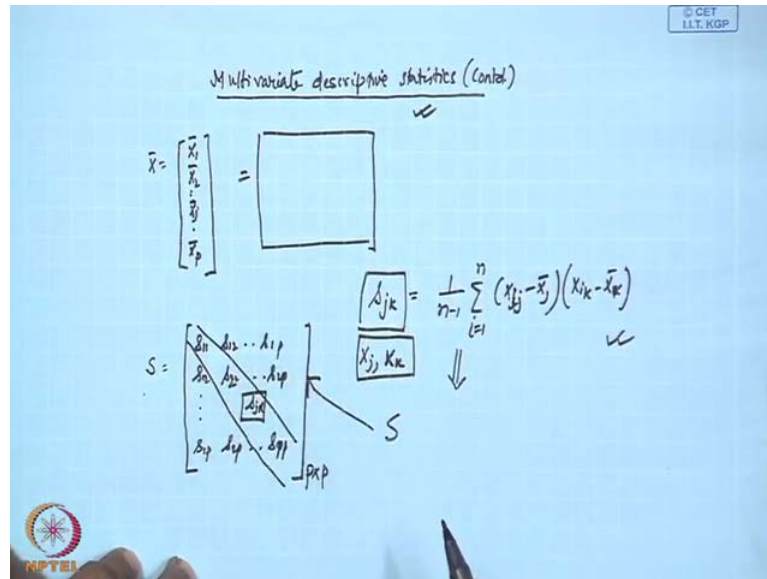 © CET
I.I.T. KGP
Multivariate descriptive statistics (Contd.)
x̄ = [x̄₁ x̄₂ : x̄ⱼ . x̄ₚ] =
sⱼₖ = 1/(n-1) Σᵢ₌₁ⁿ (xᵢⱼ - x̄ⱼ)(xᵢₖ - x̄ₖ)
xⱼ, xₖ
S = [s₁₁ s₁₂ .. s₁ₚ
s₁₂ s₂₂ .. s₂ₚ
: sⱼₖ
s₁ₚ s₂ₚ .. sₚₚ] p×p
S
NPTEL